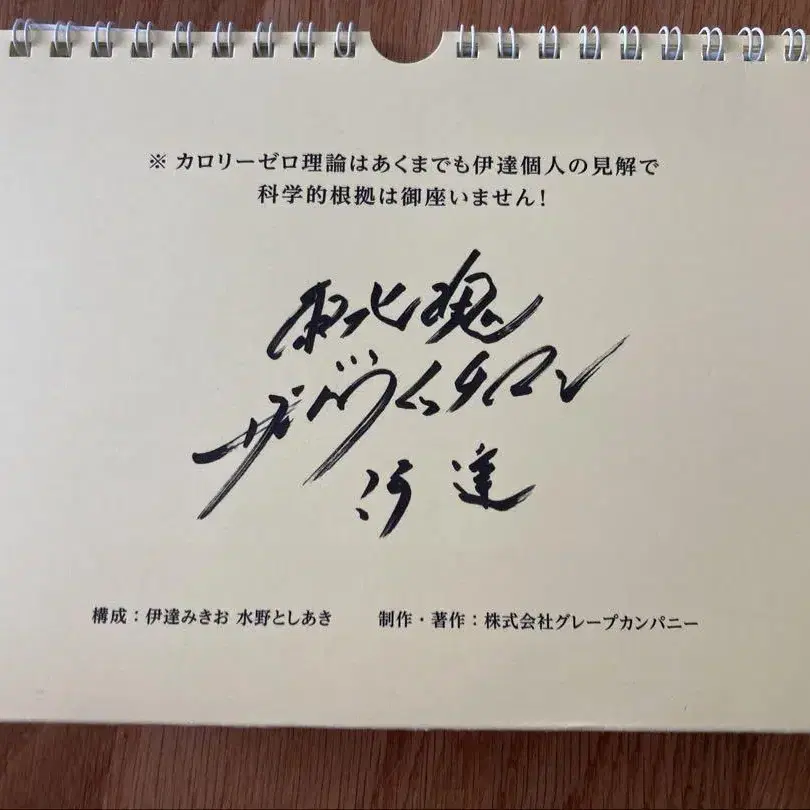 ※ カロリーゼロ理論はあくまでも伊達個人の見解で
科学的根拠は御座いません！
東北魂
サンドウィッチマン
伊達
構成：伊達みきお 水野としあき　制作・著作：株式会社グレープカンパニー